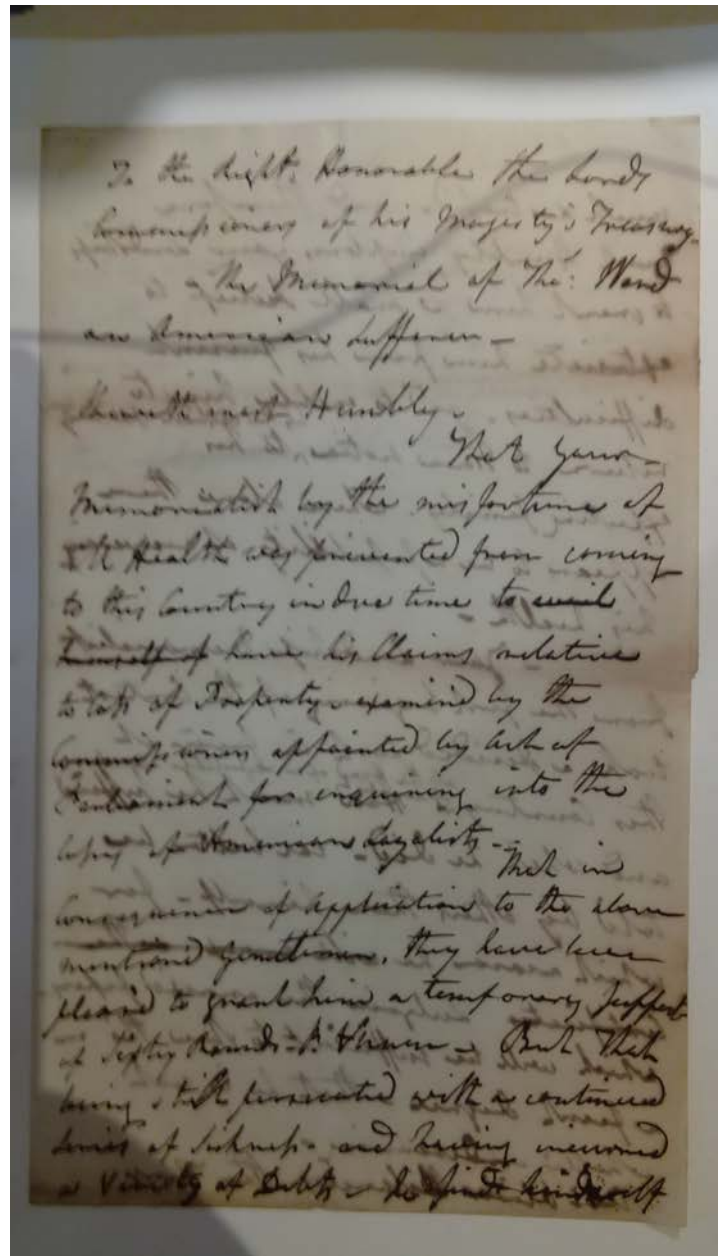 To the Right. Honorable the Lords
Commissioners of his Majesty's Treasury.
The Memorial of Tho: Ward
an American Sufferer —
Sheweth most Humbly.
That your
Memorialist by the misfortune of
ill Health was prevented from coming
to this Country in due time to avail
himself of have his Claims relative
to loss of Property examined by the
Commissioners appointed by Act of
Parliament for enquiring into the
losses of American Loyalists —
That in
consequence of application to the above
mentiond Gentlemen, they have been
pleased to grant him a temporary support
of Sixty Pounds P. Annum — But that
being still persecuted with a continued
Series of Sickness — and having incurred
a Variety of Debts — he finds himself